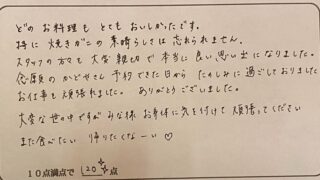 どのお料理も とても おいしかったです。
特に 焼きガニの 素晴らしさは 忘れられません。
スタッフの方々も 大変 親切で 本当に 良い思い出になりました。
念願の かどやさん 予約できた日から たのしみに過ごしておりました
お仕事も 頑張れました。 ありがとうございました。
大変な世の中ですが みな様 お身体に気を付けて 頑張ってください
また食べたい 帰りたくなーい ♡
10点満点で 120 点